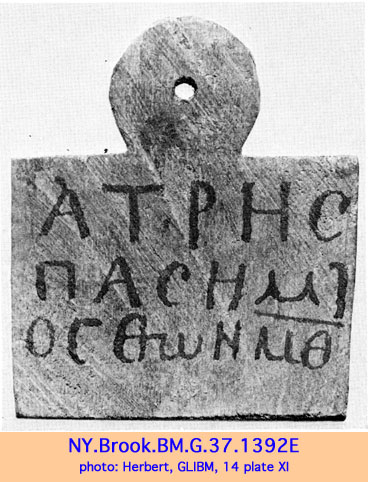 ΑΤΡΗϹ
ΠΑϹΗΜΙ
ΟϹ Θων μθ
NY.Brook.BM.G.37.1392E
photo: Herbert, GLIBM, 14 plate XI